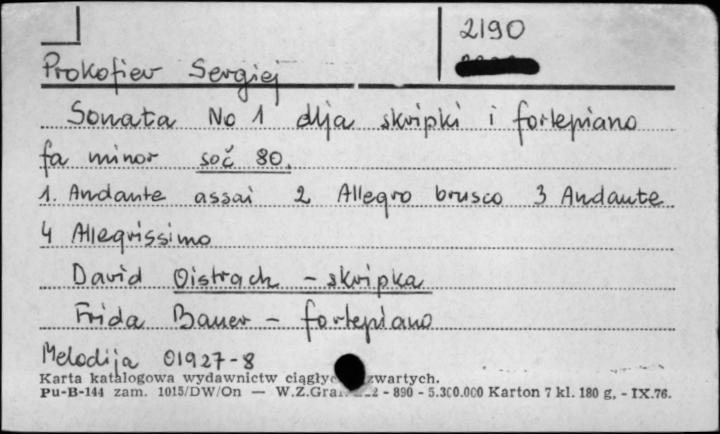 2190
Prokofiev Sergiej
Sonata No 1 dlja skripki i fortepiano
fa minor soč 80.
1. Andante assai 2 Allegro brusco 3 Andante
4 Allegrissimo
David Oistrach - skripka
Frida Bauer - fortepiano
Melodija 01927-8
Karta katalogowa wydawnictw zwartych.
Pu-B-144 zam. 1015/DW/On — - 890 - 5.300.000 Karton 7 kl. 180 g, - IX.76.